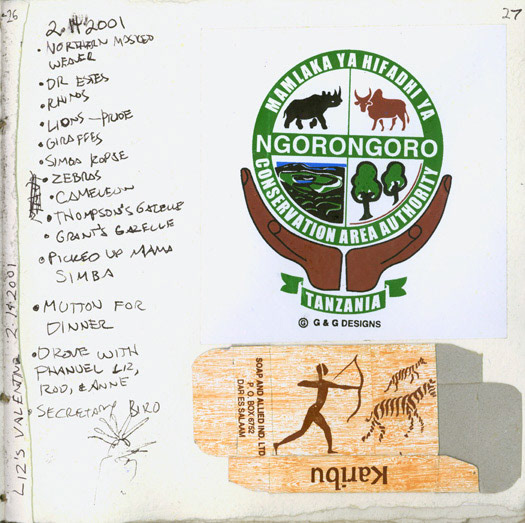 26
27
2.14.2001
• NORTHERN MASKED
WEAVER
• DR ESTES
• RHINOS
• LIONS - PRIDE
• GIRAFFES
• SIMBA KOPJE
• ZEBRAS
• CAMELEON
• THOMPSON'S GAZELLE
• GRANT'S GAZELLE
• PICKED UP MAMA
SIMBA
• MUTTON FOR
DINNER
• DROVE WITH
PHANUEL LIZ,
ROD, & ANNE
• SECRETARY BIRD
LIZ'S VALENTINE 2.14.2001
MAMLAKA YA HIFADHI YA
NGORONGORO
CONSERVATION AREA AUTHORITY
TANZANIA
G & G DESIGNS
SOAP AND ALLIED IND. LTD
P. O. BOX 6752
DAR ES SALAAM
Karibu